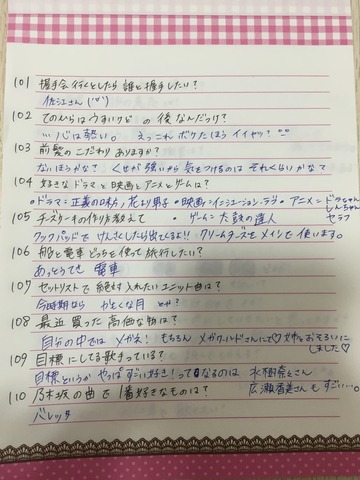 101 握手会行くとしたら誰と握手したい?
佐江さん(´∀`)
102 てのひらはうすいけど の後なんだっけ?
…心は熱い。 えっこれボケたほうイイヤツ?
103 前髪のこだわりありますか?
ないほうかな? くせが強いから気をつけるのはそれくらいかなて
104 好きなドラマと映画とアニメとゲームは?
・ドラマ:正義の味方、花より男子 ・映画:イニシエーション・ラブ ・アニメ:ドラちゃん しんちゃん セラフ
105 チーズケーキの作り方教えて ・ゲーム:太鼓の達人
クックパッドでけんさくしたら出てくるよ!! クリームチーズをメインで使います。
106 船と電車どっちを使って旅行したい?
あっとうてき 電車
107 セットリストで絶対入れたいユニット曲は?
今時期なら かもくな月 とか?
108 最近買った高価な物は?
自分の中では メガネ! もちろんメガワールドさんにて♡ 姉とおそろいにしました♡
109 目標にしてる歌手っている?
目標というか やっぱすごい好き!ってなるのは 水樹奈々さん 広瀬香美さんもすごい…。
110 乃木坂の曲で1番好きなものは?
バレッタ